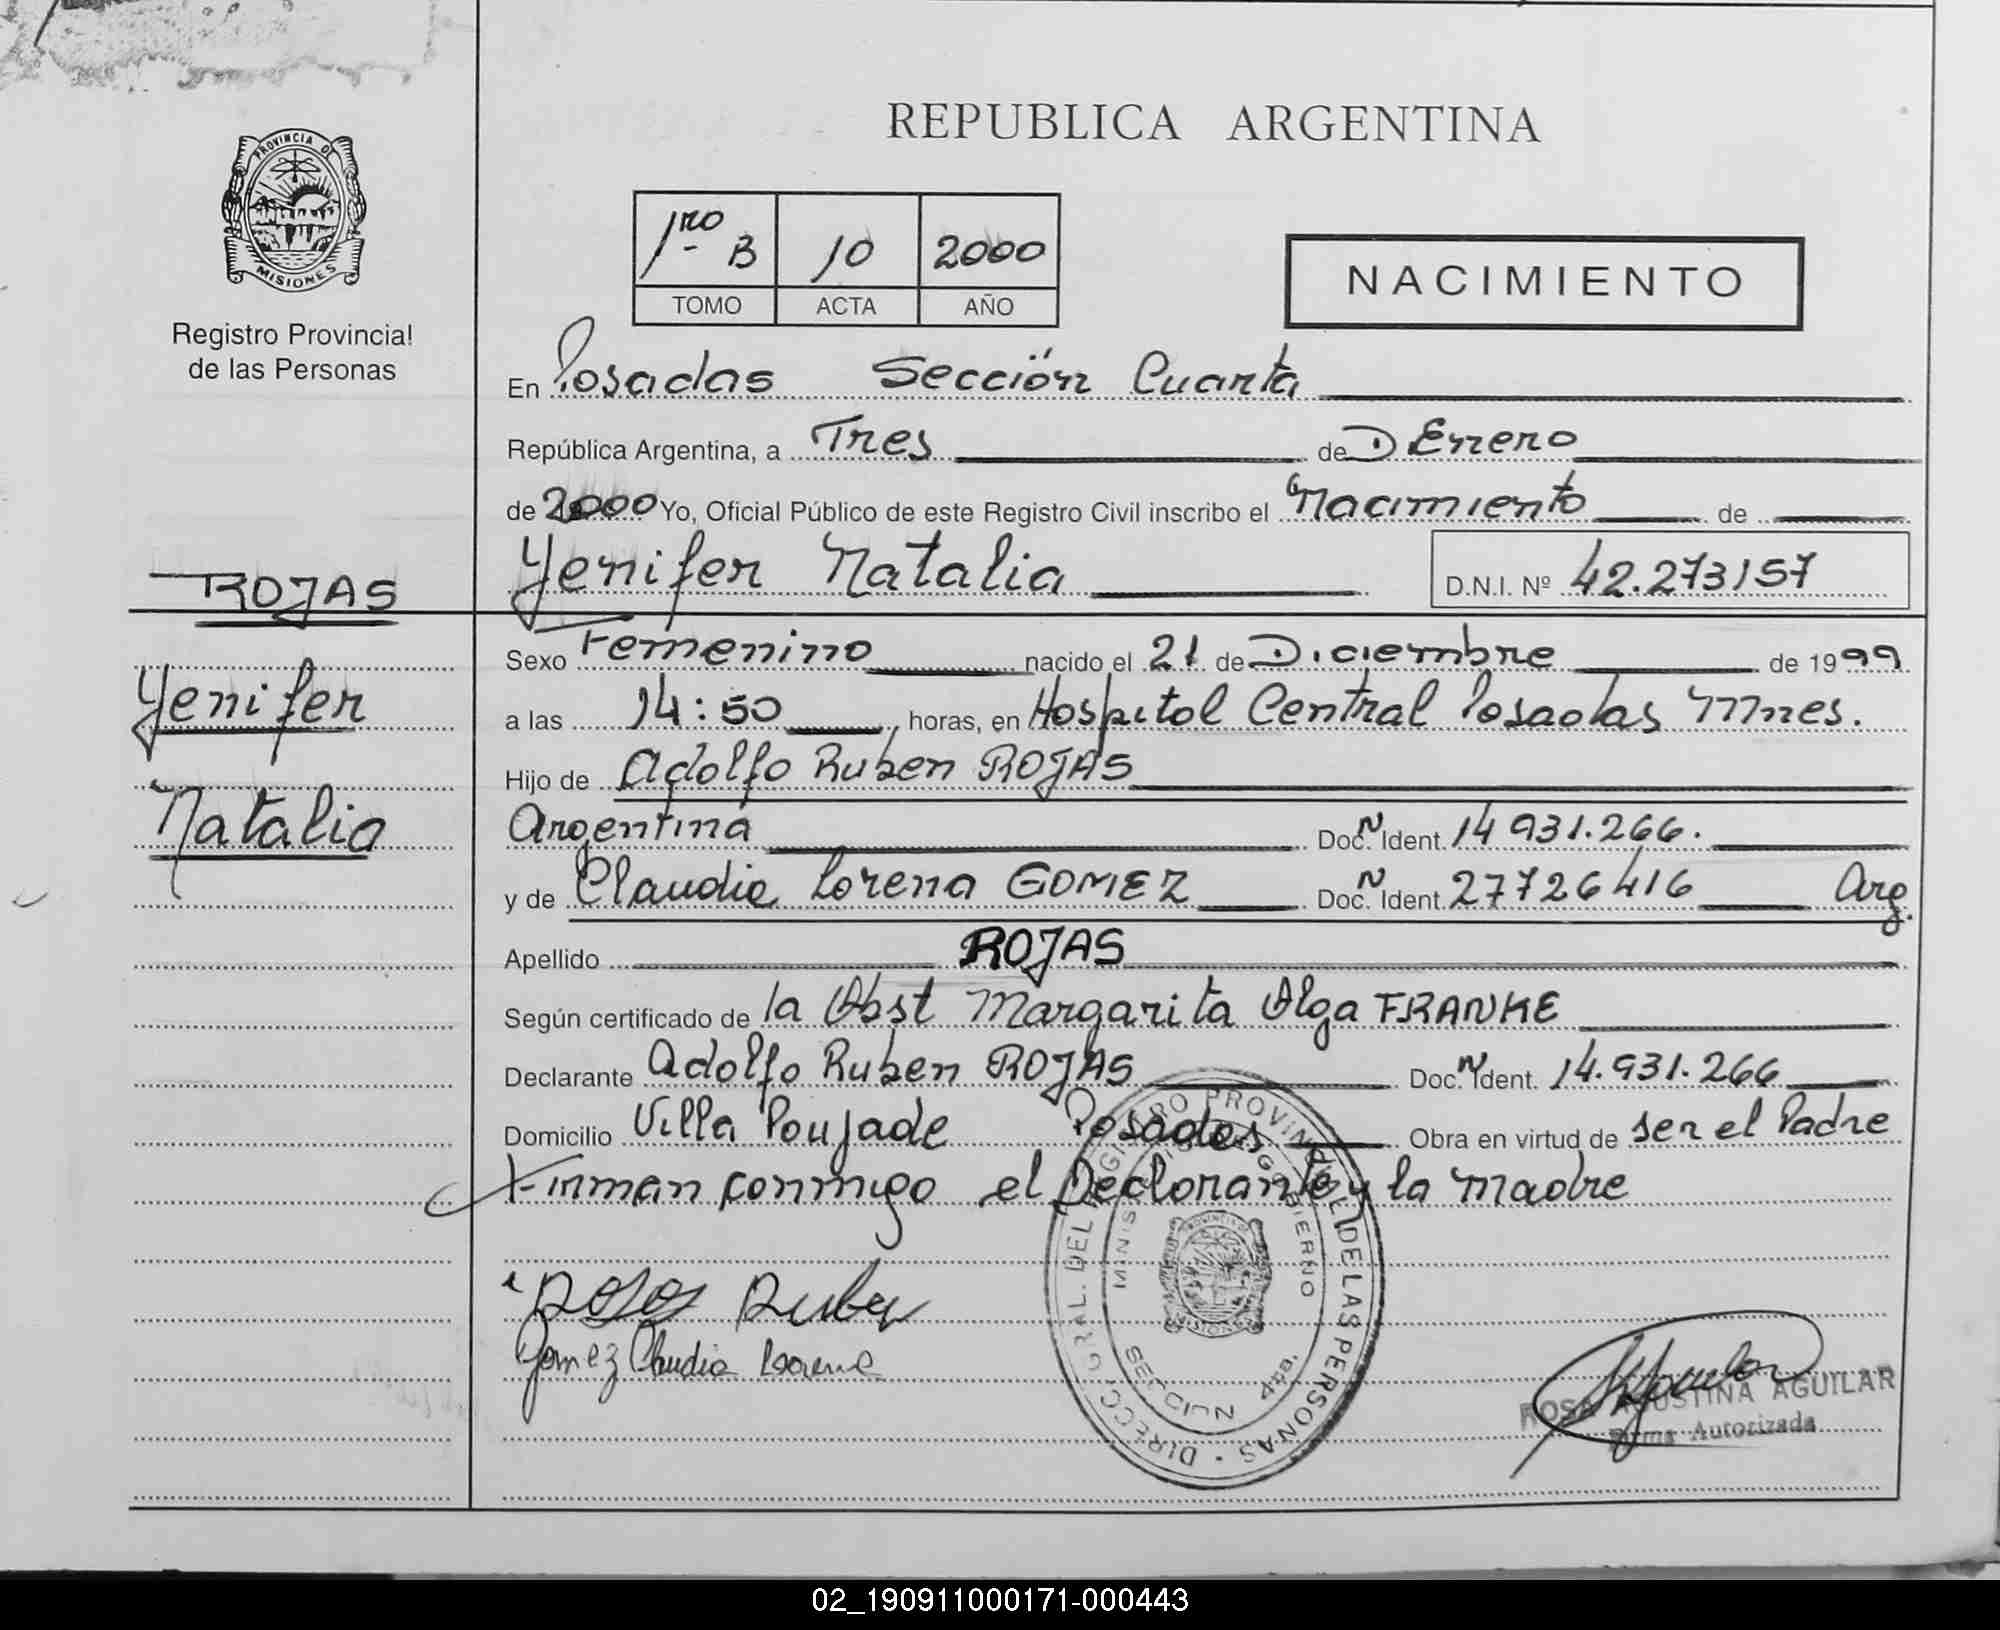 REPUBLICA ARGENTINA
PROVINCIA DE
MISIONES
Registro Provincial
de las Personas
1ro B 10 2000
TOMO ACTA AÑO
NACIMIENTO
En Posadas Sección Cuarta
República Argentina, a Tres de D Enero
de 2000 Yo, Oficial Público de este Registro Civil inscribo el Nacimiento de
Yenifer Natalia D.N.I. Nº 42.273157
ROJAS
Yenifer
Natalia
Sexo Femenino nacido el 21 de Diciembre de 1999
a las 14:50 horas, en Hospital Central Posadas Mnes.
Hijo de Adolfo Ruben ROJAS
Argentina Doc. N Ident. 14 931.266.
y de Claudia Lorena GOMEZ Doc. N Ident. 27726416 Arg.
Apellido ROJAS
Según certificado de la Obst Margarita Olga FRANKE
Declarante Adolfo Ruben ROJAS Doc. N Ident. 14.931.266
Domicilio Villa Poujade Posadas Obra en virtud de ser el Padre
Firman conmigo el Declarante y la Madre
Rojas Ruben
Gomez Claudia Lorena
DIRECC. GRAL. DEL REGISTRO PROVINCIAL DE LAS PERSONAS
MINISTERIO DE GOBIERNO
SECCION 4ta.
PROVINCIA DE
MISIONES
ROSA AGUSTINA AGUILAR
Firma Autorizada
02_190911000171-000443